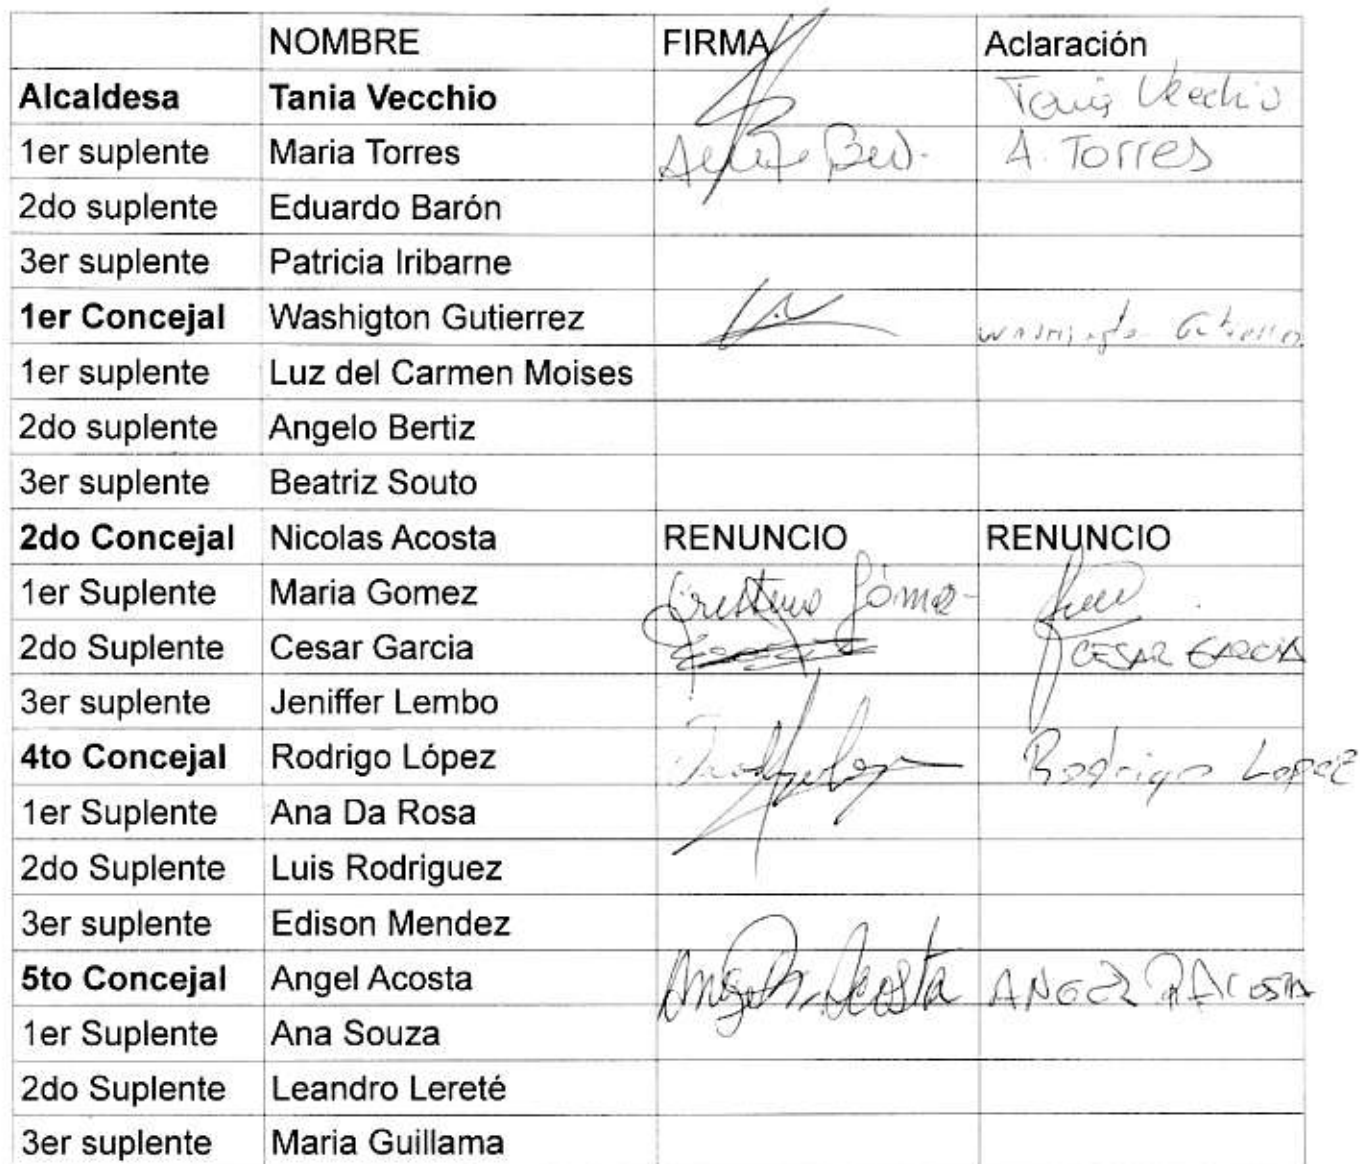 NOMBRE FIRMA Aclaración
Alcaldesa Tania Vecchio Tania Vecchio
1er suplente Maria Torres A. Torres
2do suplente Eduardo Barón
3er suplente Patricia Iribarne
1er Concejal Washigton Gutierrez
1er suplente Luz del Carmen Moises
2do suplente Angelo Bertiz
3er suplente Beatriz Souto
2do Concejal Nicolas Acosta RENUNCIO RENUNCIO
1er Suplente Maria Gomez Gómez
2do Suplente Cesar Garcia CESAR GARCIA
3er suplente Jeniffer Lembo
4to Concejal Rodrigo López Rodrigo Lopez
1er Suplente Ana Da Rosa
2do Suplente Luis Rodriguez
3er suplente Edison Mendez
5to Concejal Angel Acosta Angel R. Acosta ANGEL R ACOSTA
1er Suplente Ana Souza
2do Suplente Leandro Lereté
3er suplente Maria Guillama